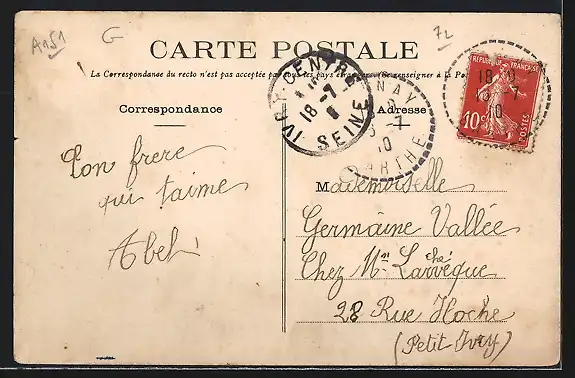 A151
G
72
CARTE POSTALE
La Correspondance du recto n'est pas acceptée par tous les pays étrangers (Se renseigner à la Poste)
Correspondance
Adresse
IVRY-CENTRE
18-7
SEINE
NAY
18-7
10
SARTHE
18-7
10
RÉPUBLIQUE FRANÇAISE
10c
POSTES
Ton frere
qui t'aime
Abel
Mademoiselle
Germaine Vallée
Chez Mr Larvèque
28 Rue Hoche
(Petit Ivry)